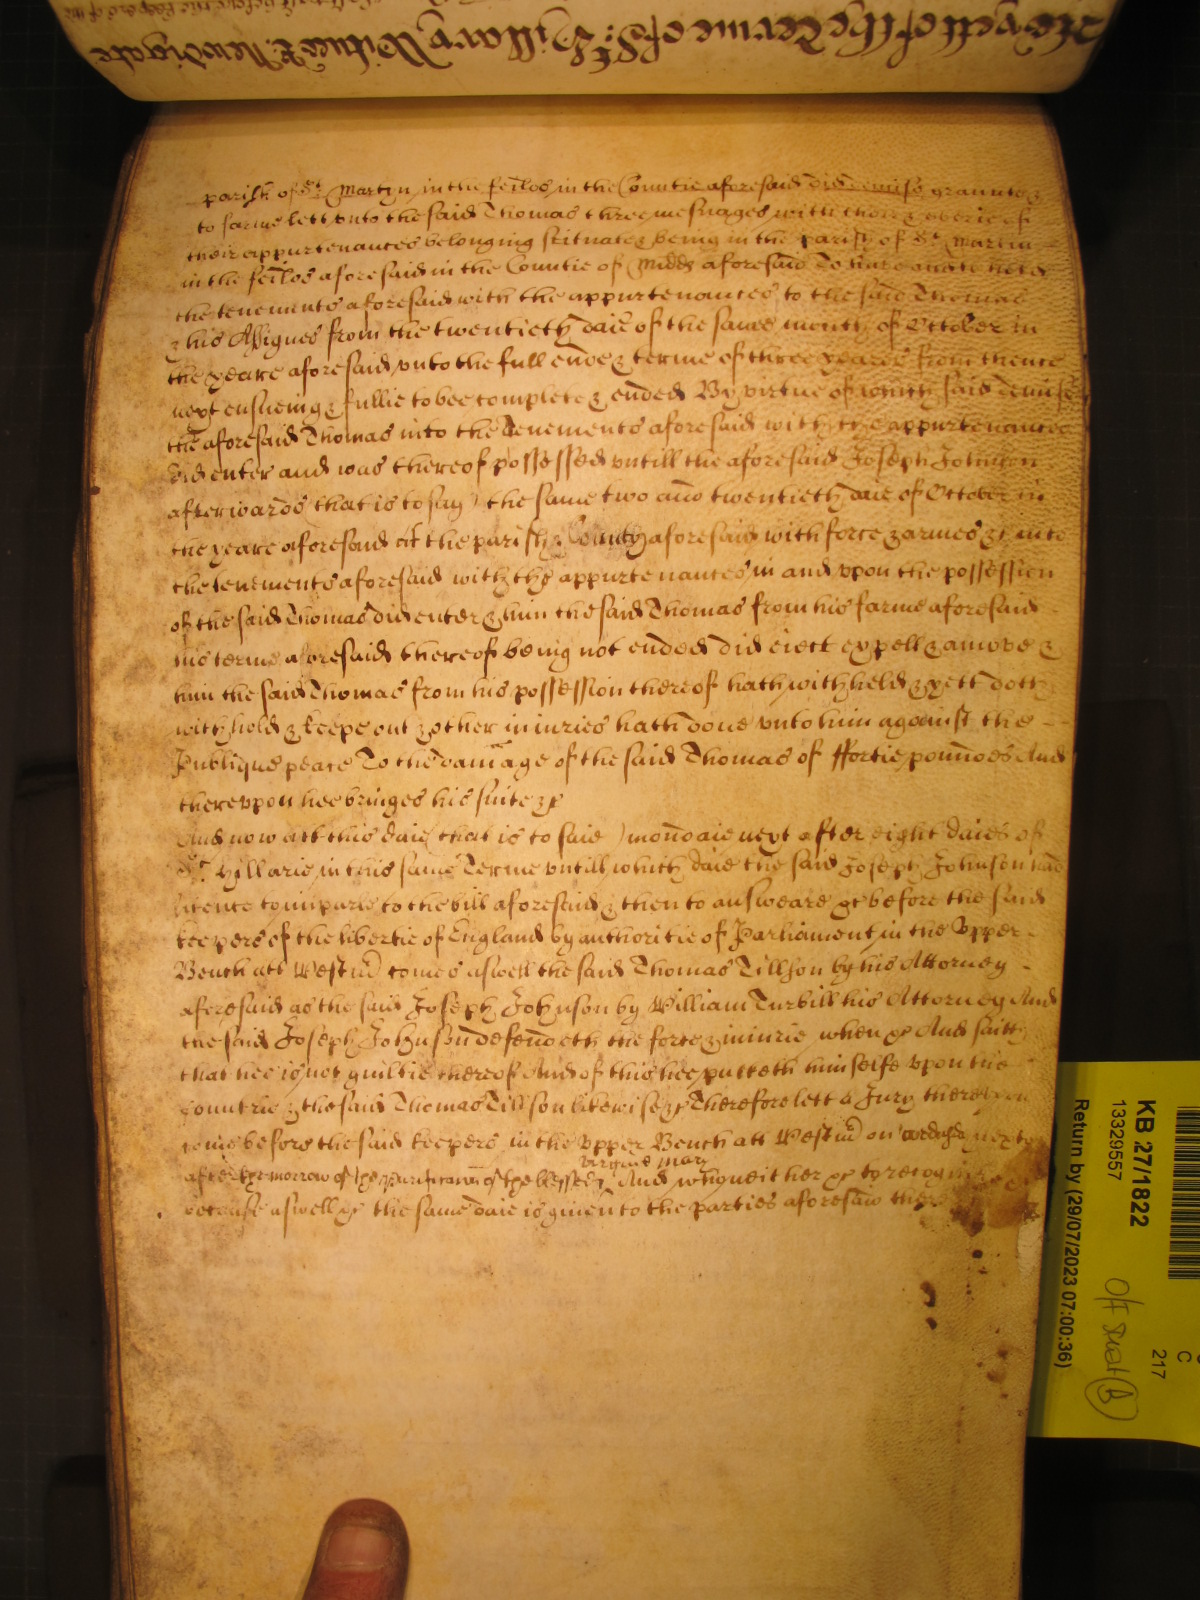 Hereyett of the Terme of St: Hillary Witnes R: Newdigate
before the keepers of the
parish of St. Martyn in the feilds in the Countie aforesaid did demise graunte &
to farme lett vnto the said Thomas three mesuages with their
their appurtenances belonging scituate & being in the parish of St. Martin
in the feilds aforesaid in the Countie of Midds aforesaid To have and to hold
the tenements aforesaid with the appurtenances to the said Thomas
& his Assignes from the twentieth daie of the same month of October in
the yeare aforesaid vnto the full ende & terme of three yeares from thence
next ensueing & fullie to bee complete & ended By virtue of which said demise
the aforesaid Thomas into the tenements aforesaid with the appurtenances
did enter and was thereof possessed vntill the aforesaid Joseph Johnson
afterwards (that is to say) the same two and twentieth daie of October in
the yeare aforesaid att the parish & County aforesaid with force & armes &c into
the tenements aforesaid with the appurtenances in and vpon the possession
of the said Thomas did enter & him the said Thomas from his farme aforesaid
his terme aforesaid thereof being not ended did eiect expell & amove &
him the said Thomas from his possession thereof hath withheld & yett doth
withhold & keepe out & other iniuries hath done vnto him against the
Publique peace To the damage of the said Thomas of ffortie pounds And
therevpon hee bringes his suite &c
And now att this daie (that is to saie) mondaie next after eight daies of
St. Hillarie in this same Terme vntill which daie the said Joseph Johnson had
licence to imparle to the bill aforesaid & then to answeare &c before the said
keepers of the libertie of England by authoritie of Parliament in the Vpper
Bench att Westmr comes aswell the said Thomas Tillson by his Attorney
aforesaid as the said Joseph Johnson by William Turbill his Attorney And
the said Joseph Johnson defendeth the force & iniurie when &c And saith
that hee is not guiltie thereof And of this hee putteth himselfe vpon the
Countrie & the said Thomas Tillson likewise &c Therefore lett a Jury therevpon
come before the said keepers in the Vpper Bench att Westmr on wedensday next
after the morrow of the purification of the blessed virgine Mary And who neither &c to recognize
because aswell &c the same daie is given to the parties aforesaid there
KB 27/1822
13329557
Return by (29/07/2023 07:00:36)
C
217